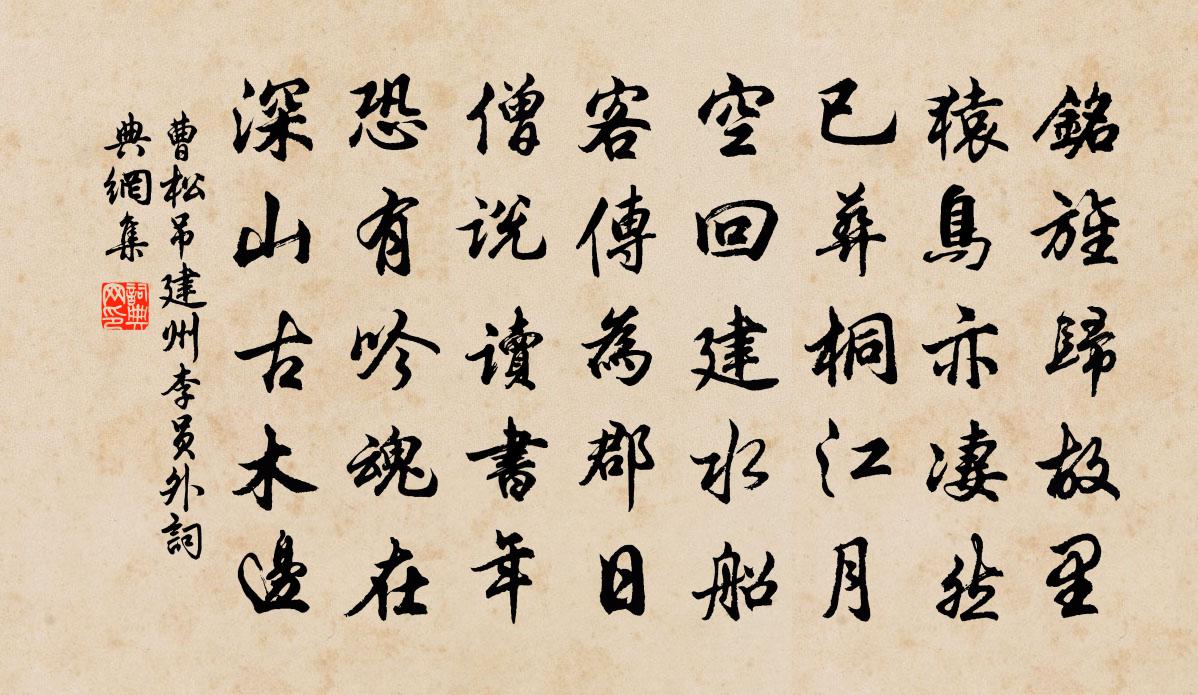 銘旌歸故里
猿鳥亦淒然
已葬桐江月
空回建水船
客傳為郡日
僧說讀書年
恐有吟魂在
深山古木邊
曹松吊建州李員外詞
典網集
詞典網印